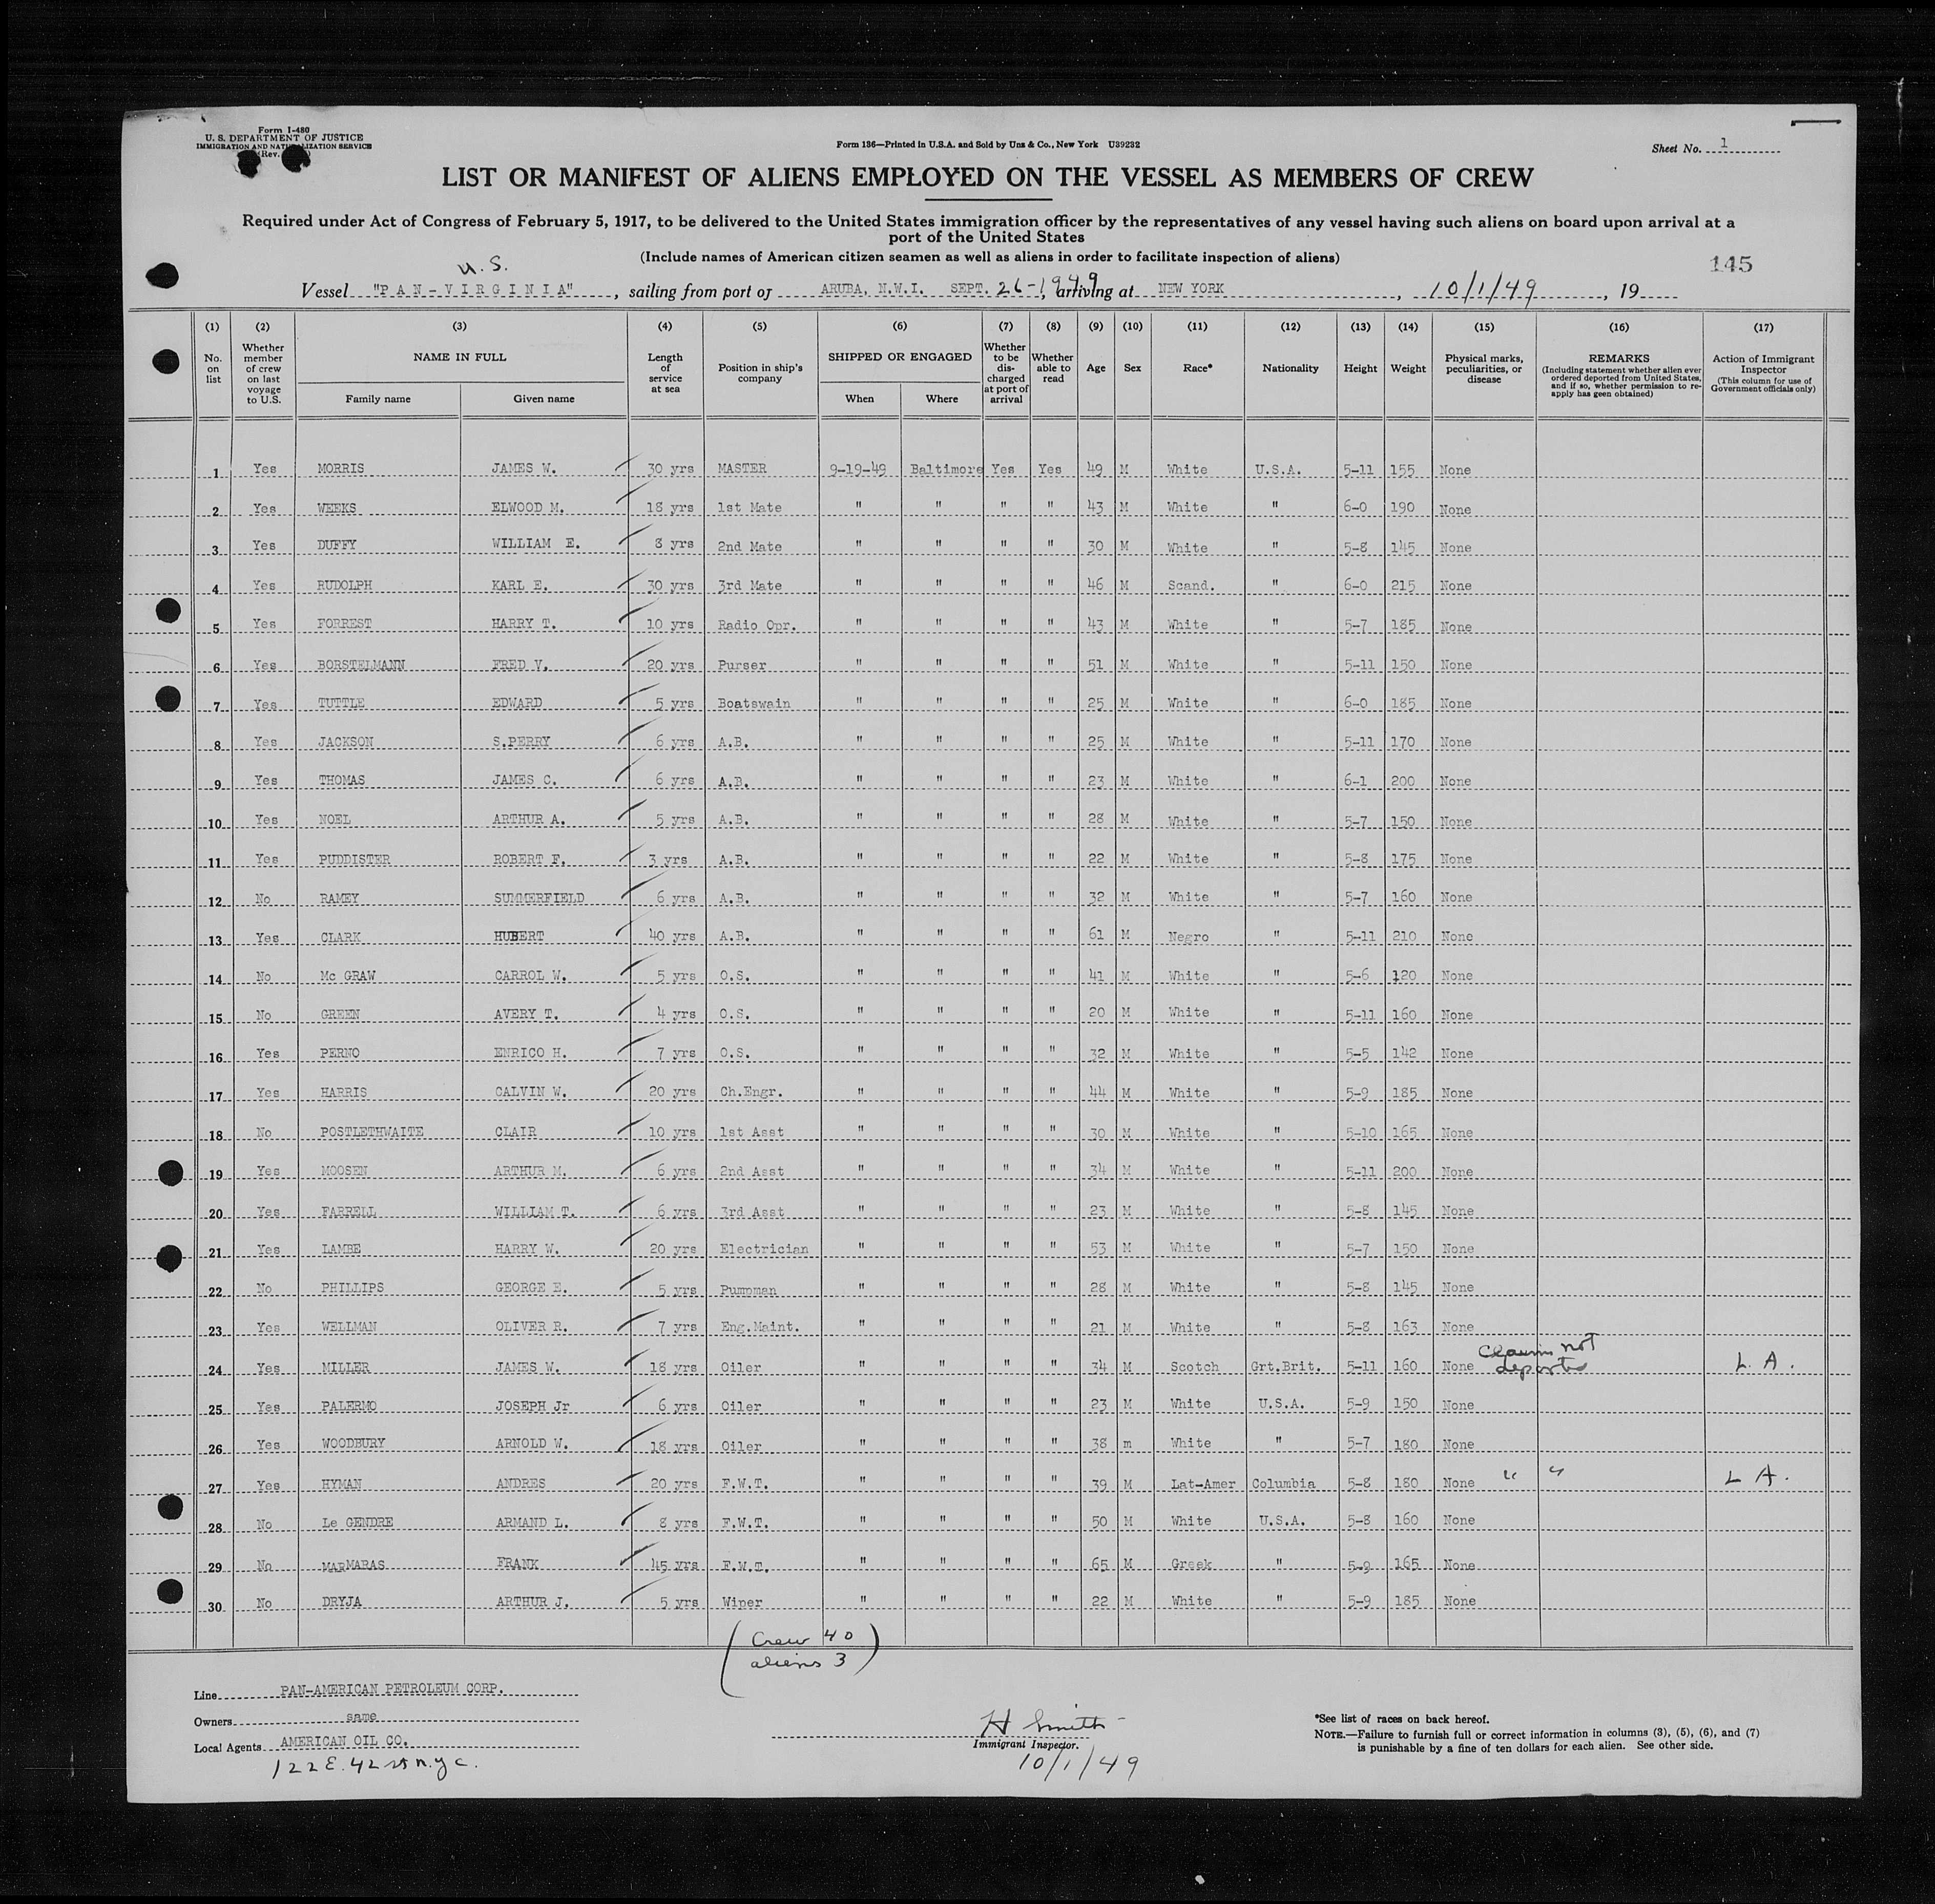 Form I-480
U. S. DEPARTMENT OF JUSTICE
IMMIGRATION AND NATURALIZATION SERVICE
(Rev.
Form 136—Printed in U.S.A. and Sold by Unz & Co., New York U39232
Sheet No. 1
LIST OR MANIFEST OF ALIENS EMPLOYED ON THE VESSEL AS MEMBERS OF CREW
Required under Act of Congress of February 5, 1917, to be delivered to the United States immigration officer by the representatives of any vessel having such aliens on board upon arrival at a
port of the United States
(Include names of American citizen seamen as well as aliens in order to facilitate inspection of aliens)
145
U.S.
Vessel "PAN-VIRGINIA", sailing from port of ARUBA, N.W.I. SEPT. 26-1949, arriving at NEW YORK, 10/1/49, 19
(1) (2) (3) (4) (5) (6) (7) (8) (9) (10) (11) (12) (13) (14) (15) (16) (17)
No. on list
Whether member of crew on last voyage to U.S.
NAME IN FULL
Family name Given name
Length of service at sea
Position in ship's company
SHIPPED OR ENGAGED
When Where
Whether to be discharged at port of arrival
Whether able to read
Age
Sex
Race*
Nationality
Height
Weight
Physical marks, peculiarities, or disease
REMARKS
(Including statement whether alien ever ordered deported from United States, and if so, whether permission to reapply has geen obtained)
Action of Immigrant Inspector
(This column for use of Government officials only)
1 Yes MORRIS JAMES W. 30 yrs MASTER 9-19-49 Baltimore Yes Yes 49 M White U.S.A. 5-11 155 None
2 Yes WEEKS ELWOOD M. 18 yrs 1st Mate " " " " 43 M White " 6-0 190 None
3 Yes DUFFY WILLIAM E. 8 yrs 2nd Mate " " " " 30 M White " 5-8 145 None
4 Yes RUDOLPH KARL E. 30 yrs 3rd Mate " " " " 46 M Scand. " 6-0 215 None
5 Yes FORREST HARRY T. 10 yrs Radio Opr. " " " " 43 M White " 5-7 185 None
6 Yes BORSTELMANN FRED V. 20 yrs Purser " " " " 51 M White " 5-11 150 None
7 Yes TUTTLE EDWARD 5 yrs Boatswain " " " " 25 M White " 6-0 185 None
8 Yes JACKSON S.PERRY 6 yrs A.B. " " " " 25 M White " 5-11 170 None
9 Yes THOMAS JAMES C. 6 yrs A.B. " " " " 23 M White " 6-1 200 None
10 Yes NOEL ARTHUR A. 5 yrs A.B. " " " " 28 M White " 5-7 150 None
11 Yes PUDDISTER ROBERT F. 3 yrs A.B. " " " " 22 M White " 5-8 175 None
12 No RAMEY SUMMERFIELD 6 yrs A.B. " " " " 32 M White " 5-7 160 None
13 Yes CLARK HUBERT 40 yrs A.B. " " " " 61 M Negro " 5-11 210 None
14 No Mc GRAW CARROL W. 5 yrs O.S. " " " " 41 M White " 5-6 120 None
15 No GREEN AVERY T. 4 yrs O.S. " " " " 20 M White " 5-11 160 None
16 Yes PERNO ENRICO H. 7 yrs O.S. " " " " 32 M White " 5-5 142 None
17 Yes HARRIS CALVIN W. 20 yrs Ch.Engr. " " " " 44 M White " 5-9 185 None
18 No POSTLETHWAITE CLAIR 10 yrs 1st Asst " " " " 30 M White " 5-10 165 None
19 Yes MOOSEN ARTHUR M. 6 yrs 2nd Asst " " " " 34 M White " 5-11 200 None
20 Yes FARRELL WILLIAM T. 6 yrs 3rd Asst " " " " 23 M White " 5-8 145 None
21 Yes LAMBE HARRY W. 20 yrs Electrician " " " " 53 M White " 5-7 150 None
22 No PHILLIPS GEORGE E. 5 yrs Pumpman " " " " 28 M White " 5-8 145 None
23 Yes WELLMAN OLIVER R. 7 yrs Eng.Maint. " " " " 21 M White " 5-8 163 None
24 Yes MILLER JAMES W. 18 yrs Oiler " " " " 34 M Scotch Grt.Brit. 5-11 160 None Claims not deported L. A.
25 Yes PALERMO JOSEPH Jr 6 yrs Oiler " " " " 23 M White U.S.A. 5-9 150 None
26 Yes WOODBURY ARNOLD W. 18 yrs Oiler " " " " 38 m White " 5-7 180 None
27 Yes HYMAN ANDRES 20 yrs F.W.T. " " " " 39 M Lat-Amer Columbia 5-8 180 None " " L A.
28 No Le GENDRE ARMAND L. 8 yrs F.W.T. " " " " 50 M White U.S.A. 5-8 160 None
29 No MARMARAS FRANK 45 yrs F.W.T. " " " " 65 M Greek " 5-9 165 None
30 No DRYJA ARTHUR J. 5 yrs Wiper " " " " 22 M White " 5-9 185 None
(Crew 40
aliens 3)
Line PAN-AMERICAN PETROLEUM CORP.
Owners same
Local Agents AMERICAN OIL CO.
122 E. 42 St N.Y.C.
H Smith
Immigrant Inspector.
10/1/49
*See list of races on back hereof.
NOTE.—Failure to furnish full or correct information in columns (3), (5), (6), and (7)
is punishable by a fine of ten dollars for each alien. See other side.